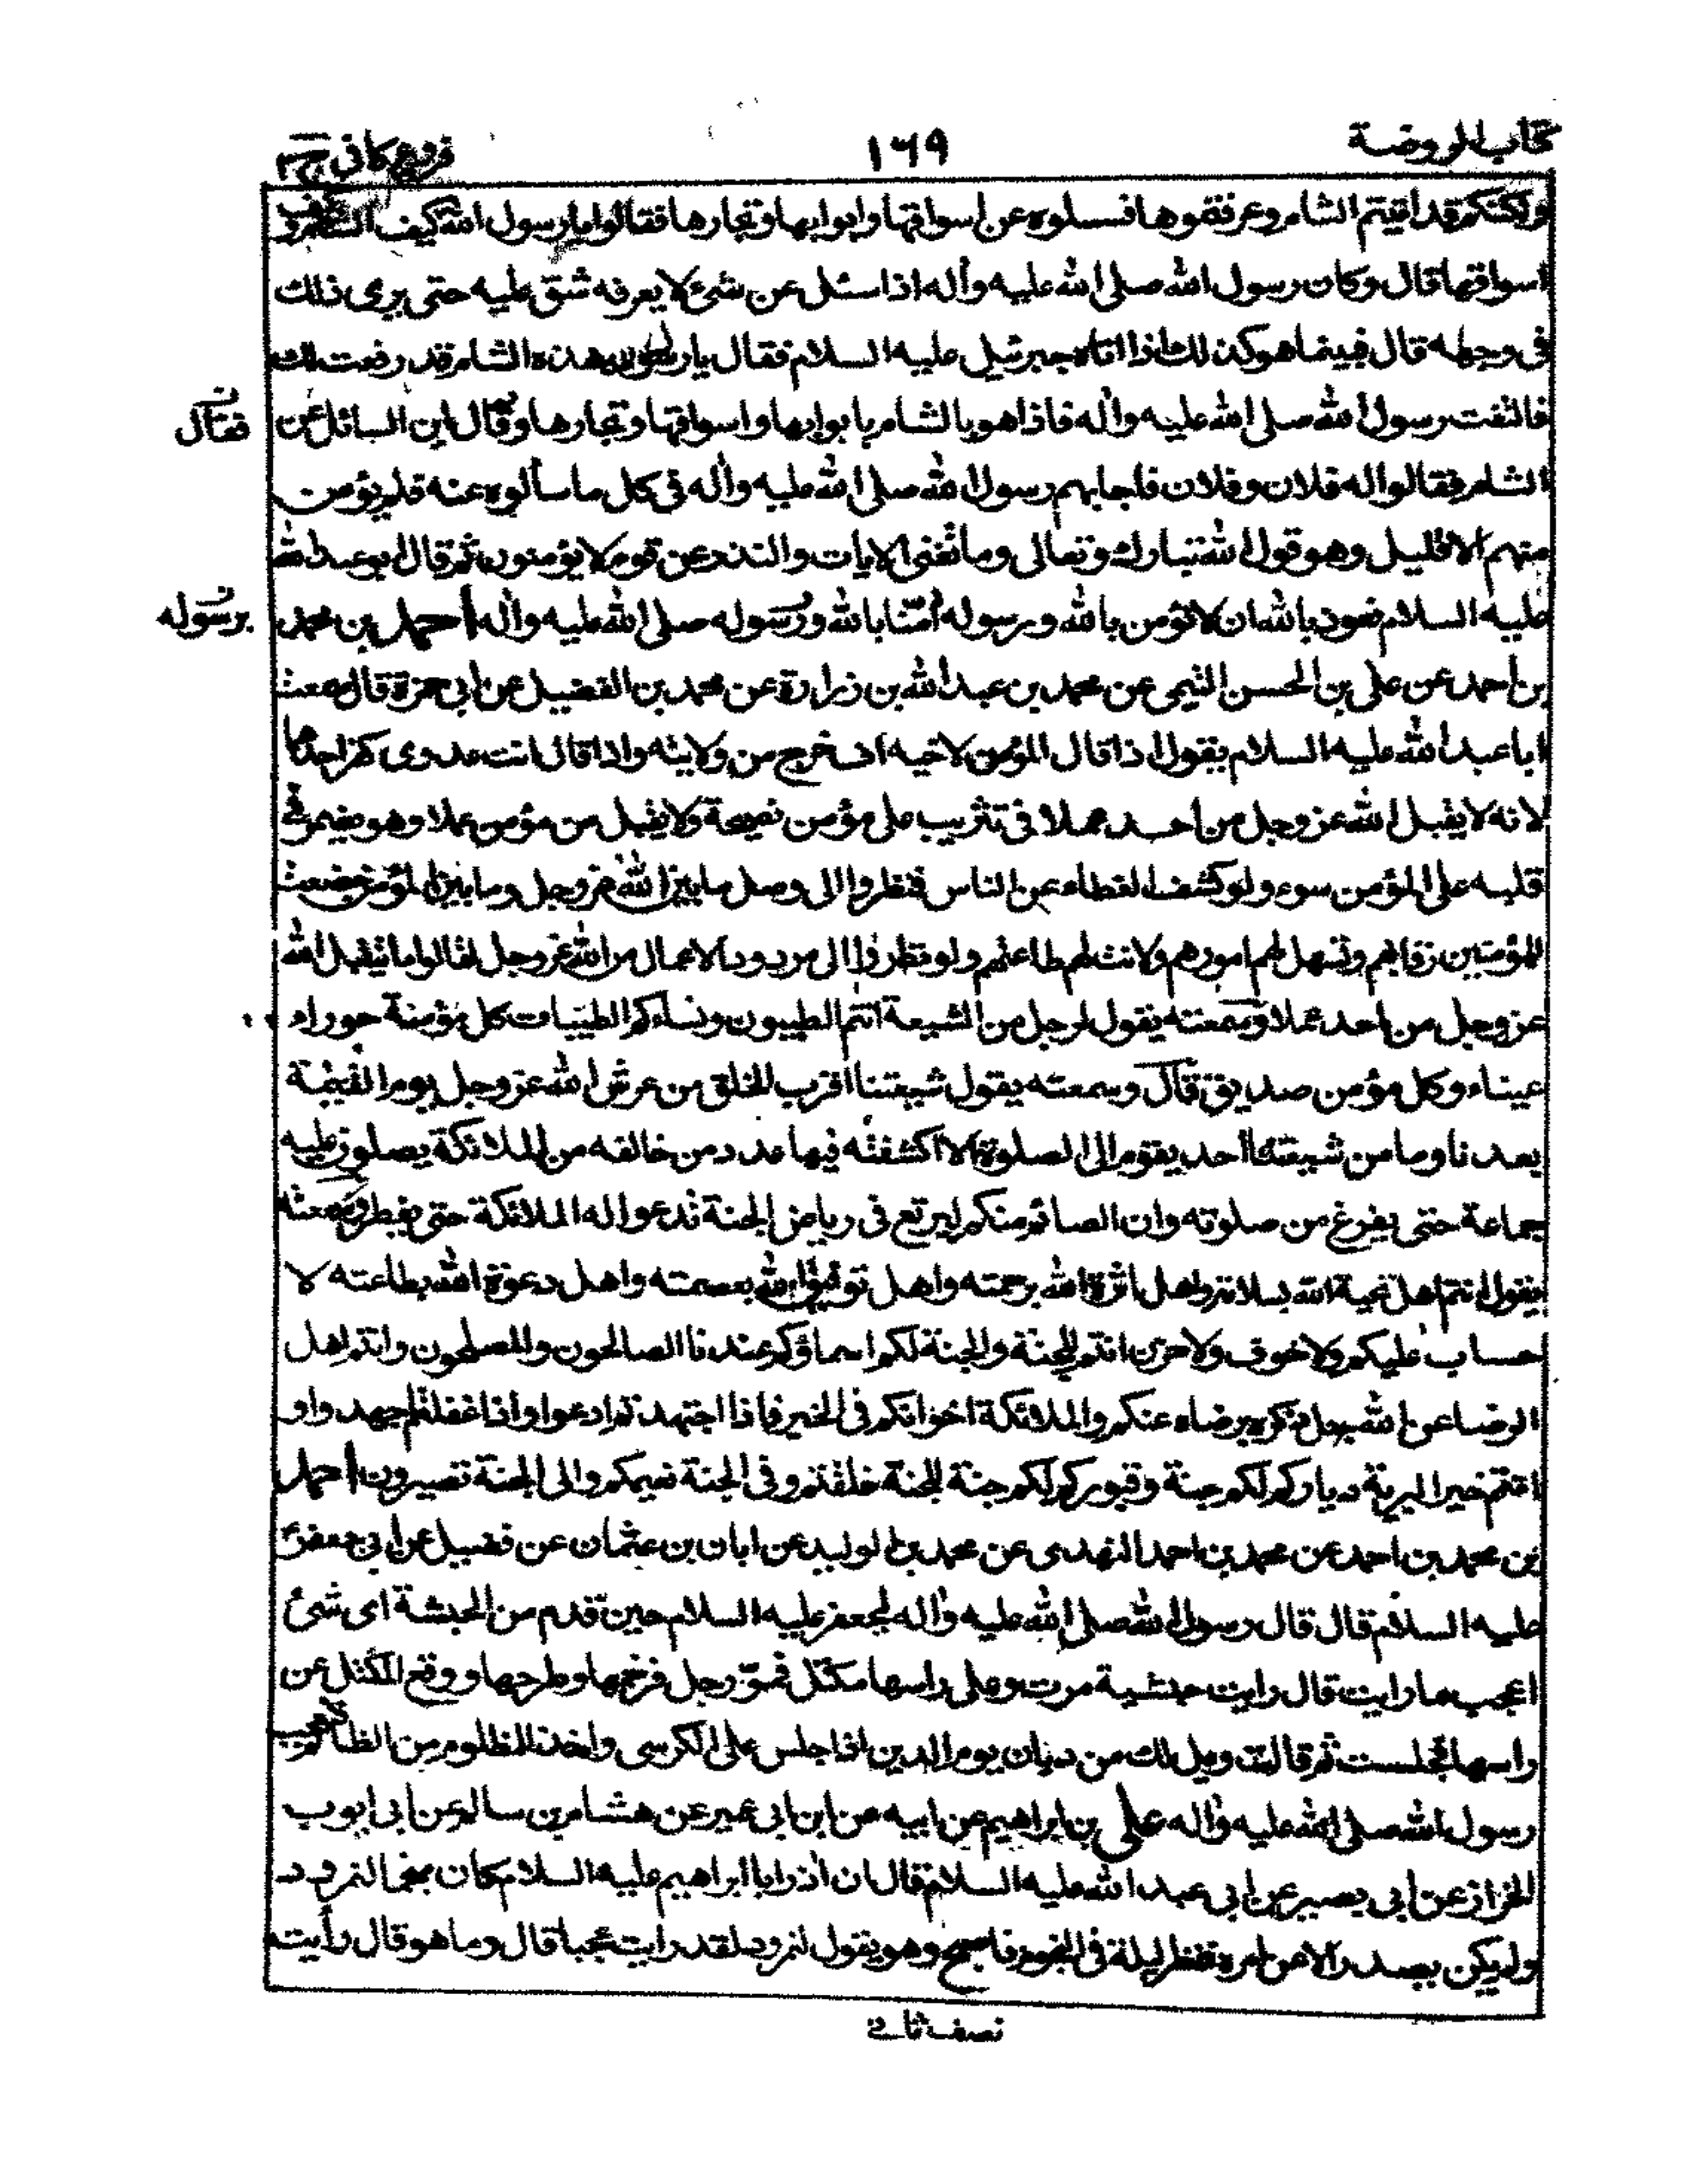 كتاب الروضة ١٦٩ فروع كافى ج٣
ولكنكم قد اتيتم الشام وعرفتموها فسلوه عن اسواقها وابوابها وتجارها فقالوا يا رسول الله كيف الشام و
اسواقها قال وكان رسول الله صلى الله عليه وآله اذا سئل عن شئ لا يعرفه شق عليه حتى يرى ذلك
فى وجهه قال فبينما هو كذلك اذا اتاه جبرئيل عليه السلام فقال يا رسول الله هذه الشام قد رفعت لك
فالتفت رسول الله صلى الله عليه وآله فاذا هو بالشام بابوابها واسواقها وتجارها وقال اين السائل عن
فقال
الشام فقالوا له فلان وفلان فاجابهم رسول الله صلى الله عليه وآله فى كل ما سألوه عنه فلم يؤمن
منهم الا قليل وهو قول الله تبارك وتعالى وما تغنى الايات والنذر عن قوم لا يؤمنون ثم قال ابو عبد الله
عليه السلام نعوذ بالله ان لا نؤمن بالله وبرسوله آمنّا بالله ورسوله صلى الله عليه وآله احمد بن محمد
برسوله
بن احمد عن على بن الحسن التيمى عن محمد بن عبد الله بن زرارة عن محمد بن الفضيل عن ابى حمزة قال سمعت
ابا عبد الله عليه السلام يقول اذا قال المؤمن لاخيه اف خرج من ولايته واذا قال انت عدوى كفر احدهما
لانه لا يقبل الله عز وجل من احد عملا فى تثريب على مؤمن نصيحة ولا يقبل من مؤمن عملا وهو يضمر فى
قلبه على المؤمن سوء ولو كشف الغطاء عن الناس فنظروا الى وصل ما بين الله عز وجل وما بين المؤمن خضعت
للمؤمنين رقابهم وتسهل لهم امورهم ولانت لهم طاعتهم ولو نظروا الى مردود الاعمال من الله عز وجل لقالوا ما يتقبل الله
عز وجل من احد عملا وسمعته يقول لرجل من الشيعة انتم الطيبون ونساءكم الطيبات كل مؤمنة حوراء
عيناء وكل مؤمن صديق قال وسمعته يقول شيعتنا اقرب الخلق من عرش الله عز وجل يوم القيمة
بعدنا وما من شيعتنا احد يقوم الى الصلوة الا اكتنفته فيها عدد من خالفه من الملائكة يصلون عليه
جماعة حتى يفرغ من صلوته وان الصائم منكم ليرتع فى رياض الجنة تدعو اله الملائكة حتى يفطر وسمعته
يقول انتم اهل تحية الله بسلامه واهل اثرة الله برحمته واهل توفيق الله بعصمته واهل دعوة الله بطاعته لا
حساب عليكم ولا خوف ولا حزن انتم للجنة والجنة لكم اسماؤكم عندنا الصالحون والمصلحون وانتم اهل
الرضا عن الله بهل ذكره برضاه عنكم والملائكة اخوانكم فى الخير فاذا اجتهدتم ادعوا واذا غفلتم اجهدوا و
انتم خير البرية دياركم لكم جنة وقبوركم لكم جنة للجنة خلقتم وفى الجنة نعيمكم والى الجنة تصيرون احمد
بن محمد بن احمد عن محمد بن احمد النهدى عن محمد بن الوليد عن ابان بن عثمان عن فضيل عن ابى جعفر
عليه السلام قال قال رسول الله صلى الله عليه وآله لجعفر عليه السلام حين قدم من الحبشة اى شئ
اعجب ما رايت قال رايت حبشية مرت وعلى راسها مكتل فمرّ رجل فزحمها وطرحها ووقع المكتل عن
راسها فجلست ثم قالت ويل لك من ديان يوم الدين اذا جلس على الكرسى واخذ للمظلوم من الظالم فتعجب
رسول الله صلى الله عليه وآله على بن ابراهيم عن ابيه عن ابن ابى عمير عن هشام بن سالم عن ابى ايوب
الخزاز عن ابى بصير عن ابى عبد الله عليه السلام قال ان آذر ابا ابراهيم عليه السلام كان منجما لنمرود
ولم يكن يصدر الا عن امره فنظر ليلة فى النجوم فاصبح وهو يقول لنمرود لقد رايت عجبا قال وما هو قال رأيت
نصف ثانى